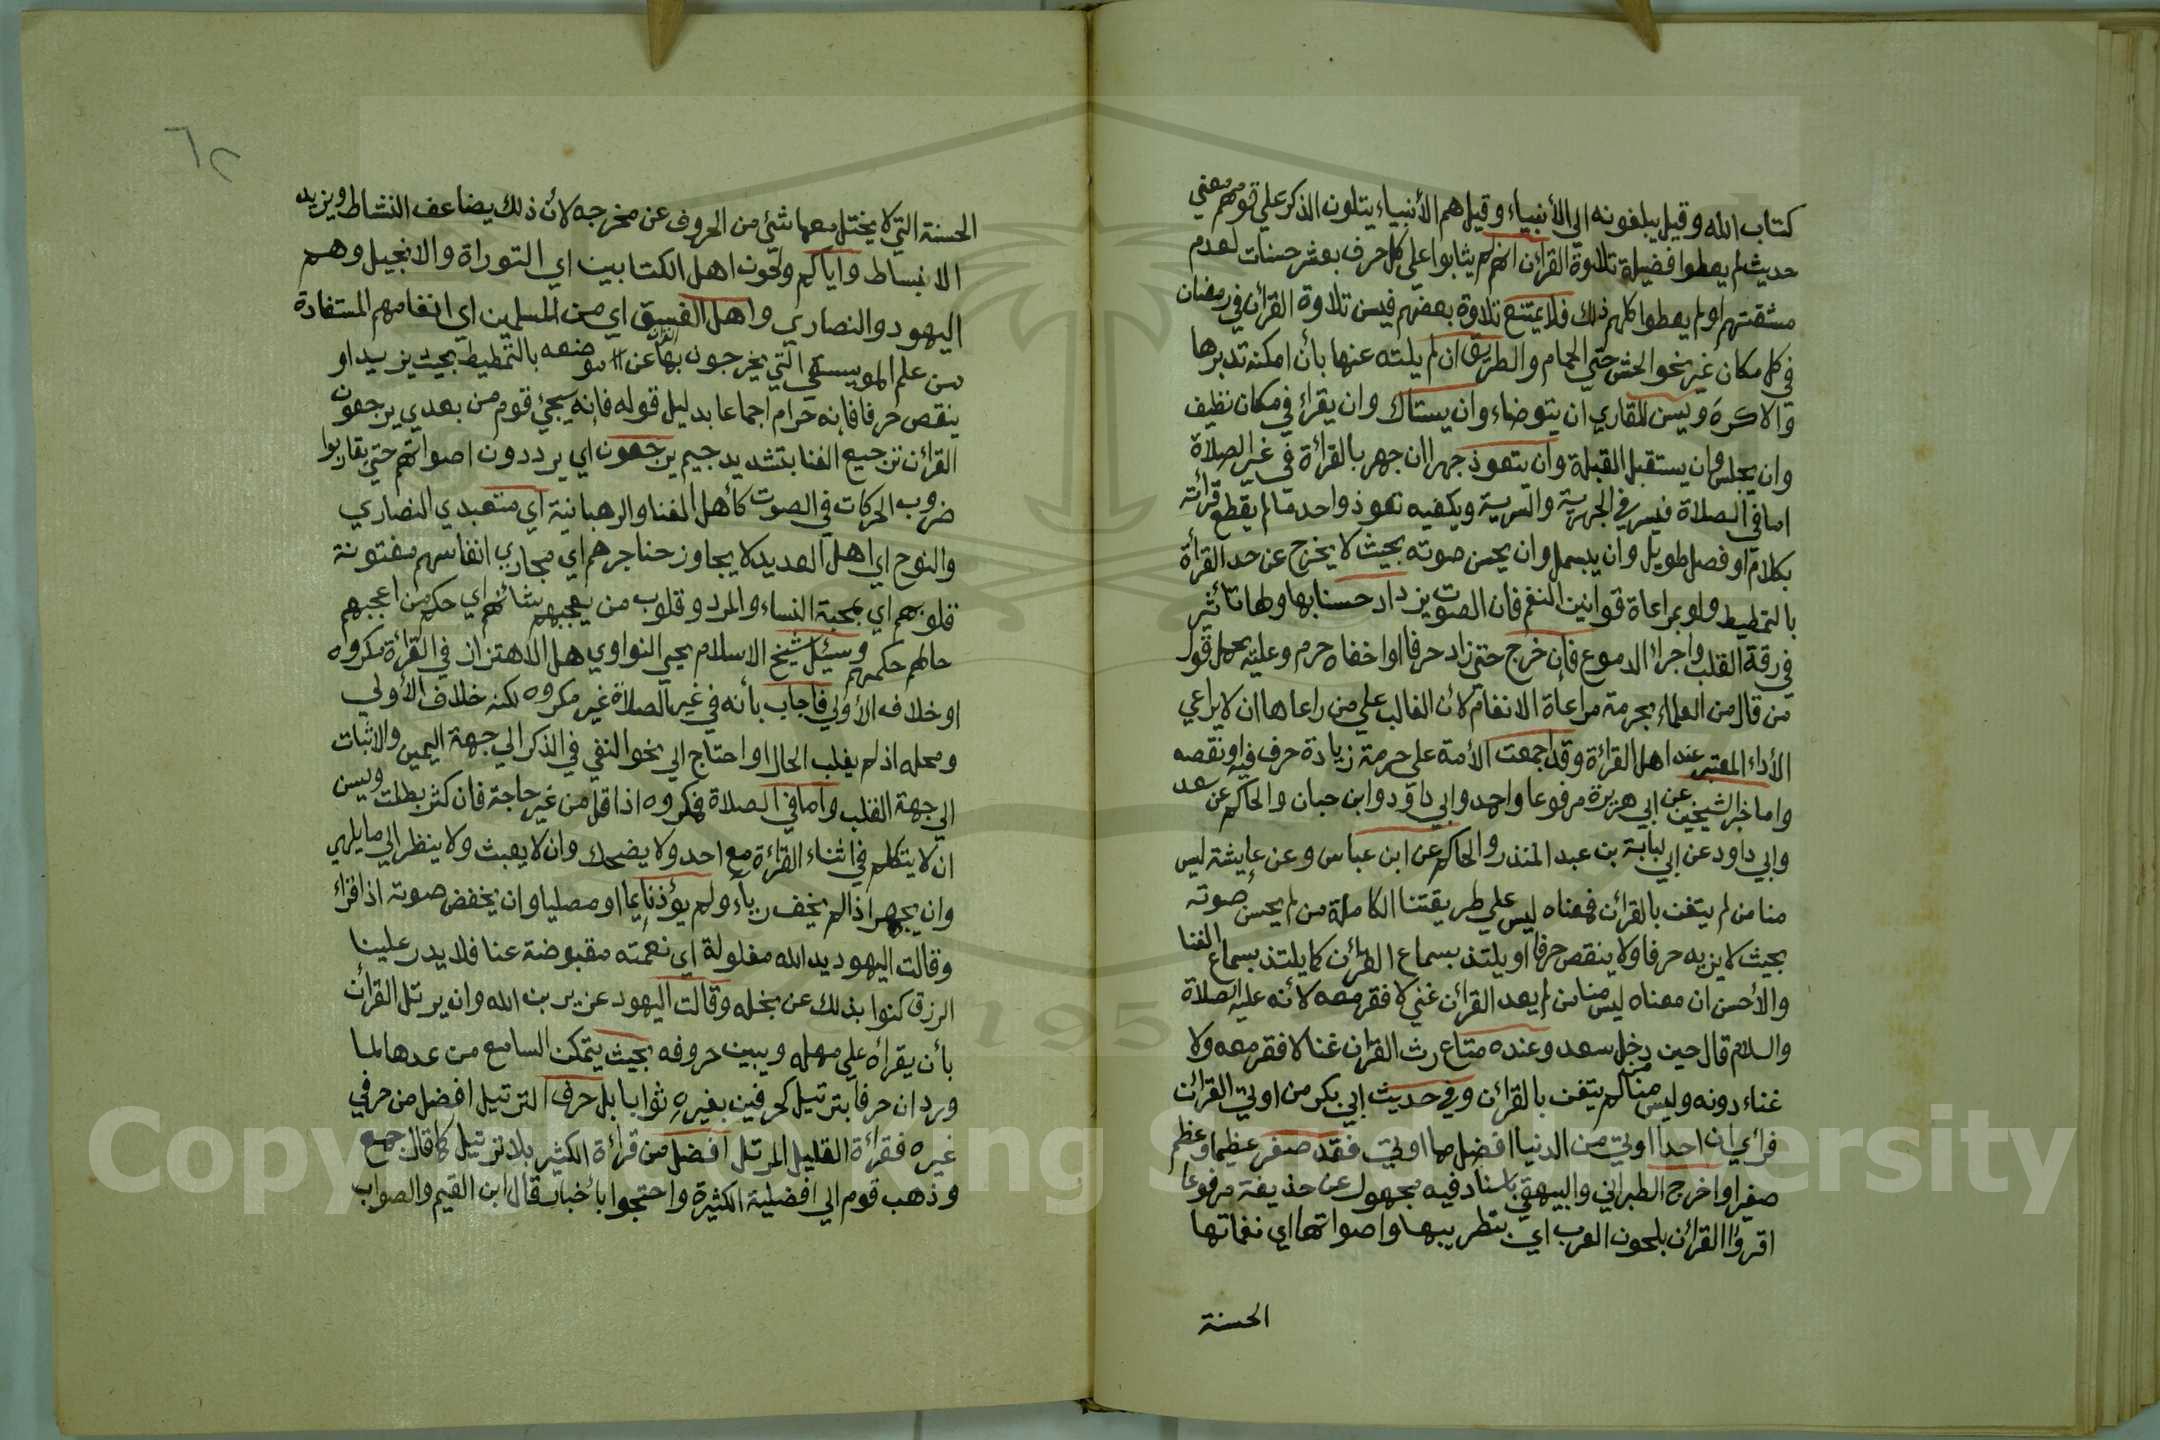 كتاب الله وقيل يبلغونه الي الأنبياء وقيل هم الأنبياء يتلون الذكر علي قومهم معني
حديث لم يعطوا فضيلة تلاوة القرأن انهم لم يثابوا علي كل حرف بعشر حسنات لعدم
مشقتهم او لم يعطوا كلهم ذلك فلا يمتنع تلاوة بعضهم فيسن تلاوة القرأن في رمضان
في كل مكان غير نحو الحش حتي الحمام والطريق ان لم يلته عنها بأن امكنه تدبرها
والا كره ويسن للقاري ان يتوضاء وان يستاك وان يقراء في مكان نظيف
وان يجلس وان يستقبل القبلة وان يتعوذ جهرا ان جهر بالقرائة في غير الصلاة
اما في الصلاة فيسر في الجهرية والسرية ويكفيه تعوذ واحد ما لم يقطع قرائته
بكلام او فصل طويل وان يبسمل وان يحسن صوته بحيث لا يخرج عن حد القرأة
بالتمطيط ولو بمراعاة قوانين النغم فان الصوت يزداد حسنا بها ولها تأثير
في رقة القلب واجراء الدموع فإن خرج حتي زاد حرفا او اخفاه حرم وعليه يحمل قول
من قال من العلماء بحرمة مراعاة الانغام لأن الغالب علي من راعاها ان لا يراعي
الأداء المعتبر عند اهل القراءة وقد اجمعت الأمة علي حرمة زيادة حرف فيه او نقصه
واما خبر الشيخين عن ابي هريرة مرفوعا واحمد وابي داود وابن حبان والحاكم عن سعد
وابي داود عن ابي لبابة بن عبد المنذر والحاكم عن ابن عباس وعن عايشة ليس
منا من لم يتغن بالقرأن فمعناه ليس علي طريقتنا الكاملة من لم يحسن صوته
بحيث لا يزيد حرفا ولا ينقص حرفا او يلتذ بسماع القرأن كما يلتذ بسماع الغنا
والأحسن ان معناه ليس منا من لم يعد القرأن غني لا فقر معه لأنه عليه الصلاة
والسلام قال حين دخل سعد وعنده متاع رث القرأن غنا لا فقر معه ولا
غناء دونه وليس منا من لم يتغن بالقرأن وفي حديث ابي بكر من اوتي القرأن
فرأي ان احدا اوتي من الدنيا افضل مما اوتي فقد صغر عظيما وعظم
صغيرا واخرج الطبراني والبيهقي باسناد فيه مجهول عن حذيفة مرفوعا
اقرؤا القرأن بلحون العرب اي بتطريبها واصواتها اي نغماتها
الحسنة
٦٢
الحسنة التي لا يختل معها شئ من الحروف عن مخرجه لأن ذلك يضاعف النشاط ويزيد
الانبساط واياكم ولحون اهل الكتابين اي التوراة والانجيل وهم
اليهود والنصاري واهل الفسق اي من المسلمين اي انغامهم المستفادة
من علم الموسيقي التي يخرجون بها القرأن عن موضعه بالتمطيط بحيث يزيد او
ينقص حرفا فإنه حرام اجماعا بدليل قوله فإنه سيجئ قوم من بعدي يرجعون
القرأن ترجيع الغنا بتشديد جيم يرجعون اي يرددون اصواتهم حتي يقاربوا
ضروب الحركات في الصوت كأهل الغنا والرهبانية اي متعبدي النصاري
والنوح اي اهل العديد لا يجاوز حناجرهم اي مجاري انفاسهم مفتونة
قلوبهم اي بمحبة النساء والمرد وقلوب من يعجبهم شانهم اي حكم من اعجبهم
حالهم حكمهم وسئل شيخ الاسلام يحيي النواوي هل الاهتزاز في القرأة مكروه
او خلاف الأولي فاجاب بأنه في غير الصلاة غير مكروه لكنه خلاف الأولي
ومحله اذ لم يغلب الحال او احتاج الي نحو النفي في الذكر الي جهة اليمين والاثبات
الي جهة القلب واما في الصلاة فمكروه اذا قل من غير حاجة فان كثر بطلت ويسن
ان لا يتكلم في اثناء القرأة مع احد ولا يضحك وان لا يعبث ولا ينظر الي ما يلهي
وان يجهر اذا لم يخف رياء ولم يؤذ نايما او مصليا وان يخفض صوته اذا قراء
وقالت اليهود يد الله مغلولة اي نعمته مقبوضة عنا فلا يدر علينا
الرزق كنوا بذلك عن بخله وقالت اليهود عزير بن الله وان يرتل القرأن
بأن يقرأه علي مهله ويبين حروفه بحيث يتمكن السامع من عدها لما
ورد ان حرفا بترتيل كحرفين بغيره ثوابا بل حرف الترتيل افضل من حرفي
غيره فقرائة القليل المرتل افضل من قراءة الكثير بلا ترتيل كما قال جمع
وذهب قوم الي افضلية الكثيرة واحتجوا بأخبار قال ابن القيم والصواب